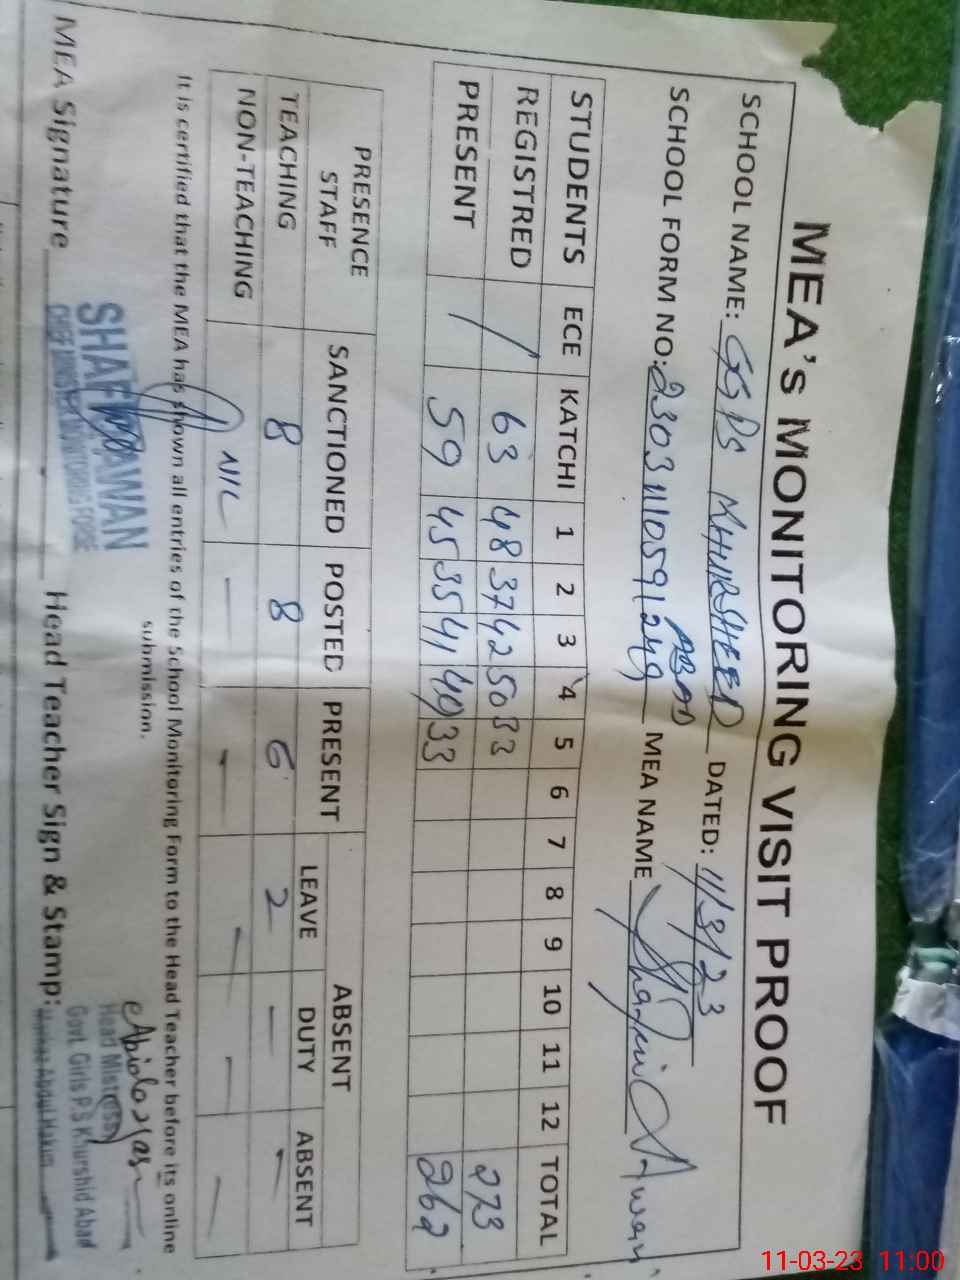 MEA's MONITORING VISIT PROOF
SCHOOL NAME: GGPS KHURSHEED ABAD DATED: 11/3/23
SCHOOL FORM NO: 23031110591249 MEA NAME Shafiuℓ Awan
STUDENTS ECE KATCHI 1 2 3 4 5 6 7 8 9 10 11 12 TOTAL
REGISTRED / 63 48 37 42 50 33 273
PRESENT 59 45 35 41 49 33 262
PRESENCE STAFF SANCTIONED POSTED PRESENT ABSENT
LEAVE DUTY ABSENT
TEACHING 8 8 6 2 — —
NON-TEACHING NIL — — — — —
It is certified that the MEA has shown all entries of the School Monitoring Form to the Head Teacher before its online
submission.
MEA Signature Head Teacher Sign & Stamp:
AWAN
Head Mistress
Govt. Girls P.S Khurshid Abad
Abdul Hakim
11-03-23 11:00